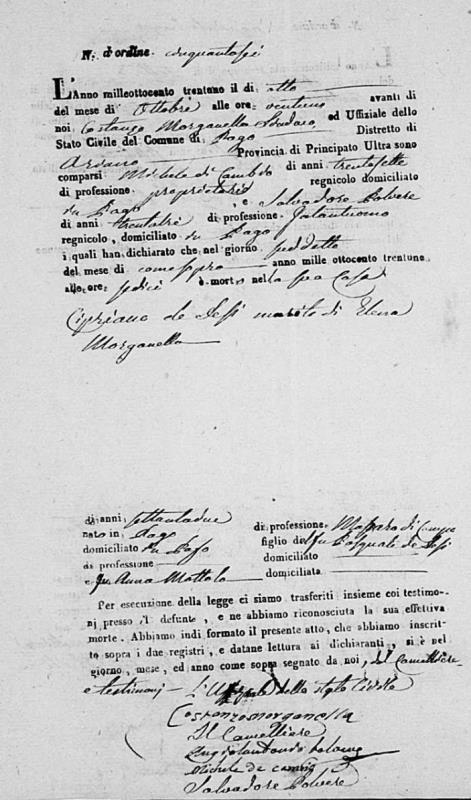 N. d'ordine cinquantasei
L'Anno milleottocento trentuno il dì otto
del mese di Ottobre alle ore ventuno avanti di
noi Costanzo Morganella Sindaco, ed Uffiziale dello
Stato Civile del Comune di Pago Distretto di
Ariano Provincia di Principato Ultra sono
comparsi Michele di Cambio di anni trentasette
di professione proprietario regnicolo domiciliato
in Pago, e Salvadore Polvere
di anni trentatrè di professione Galantuomo
regnicolo, domiciliato in Pago
i quali han dichiarato che nel giorno suddetto
del mese di come sopra anno mille ottocento trentuno
alle ore sedici è morto nella sua Casa
Cipriano de Sessi marito di Elena
Morganella
di anni settantadue di professione Massaro di
nato in Pago figlio del fu Pasquale de Sessi
domiciliato in Pago domiciliato
di professione
e fu Anna Mottola domiciliata
Per esecuzione della legge ci siamo trasferiti insieme coi testimo-
nj presso il defunto, e ne abbiamo riconosciuta la sua effettiva
morte. Abbiamo indi formato il presente atto, che abbiamo inscrit-
to sopra i due registri, e datane lettura ai dichiaranti, si è nel
giorno, mese, ed anno come sopra segnato da noi, del Cancelliere
e testimonj - L'Uffiziale dello Stato Civile
Costanzo Morganella
Il Cancelliere
Michele di Cambio
Salvadore Polvere